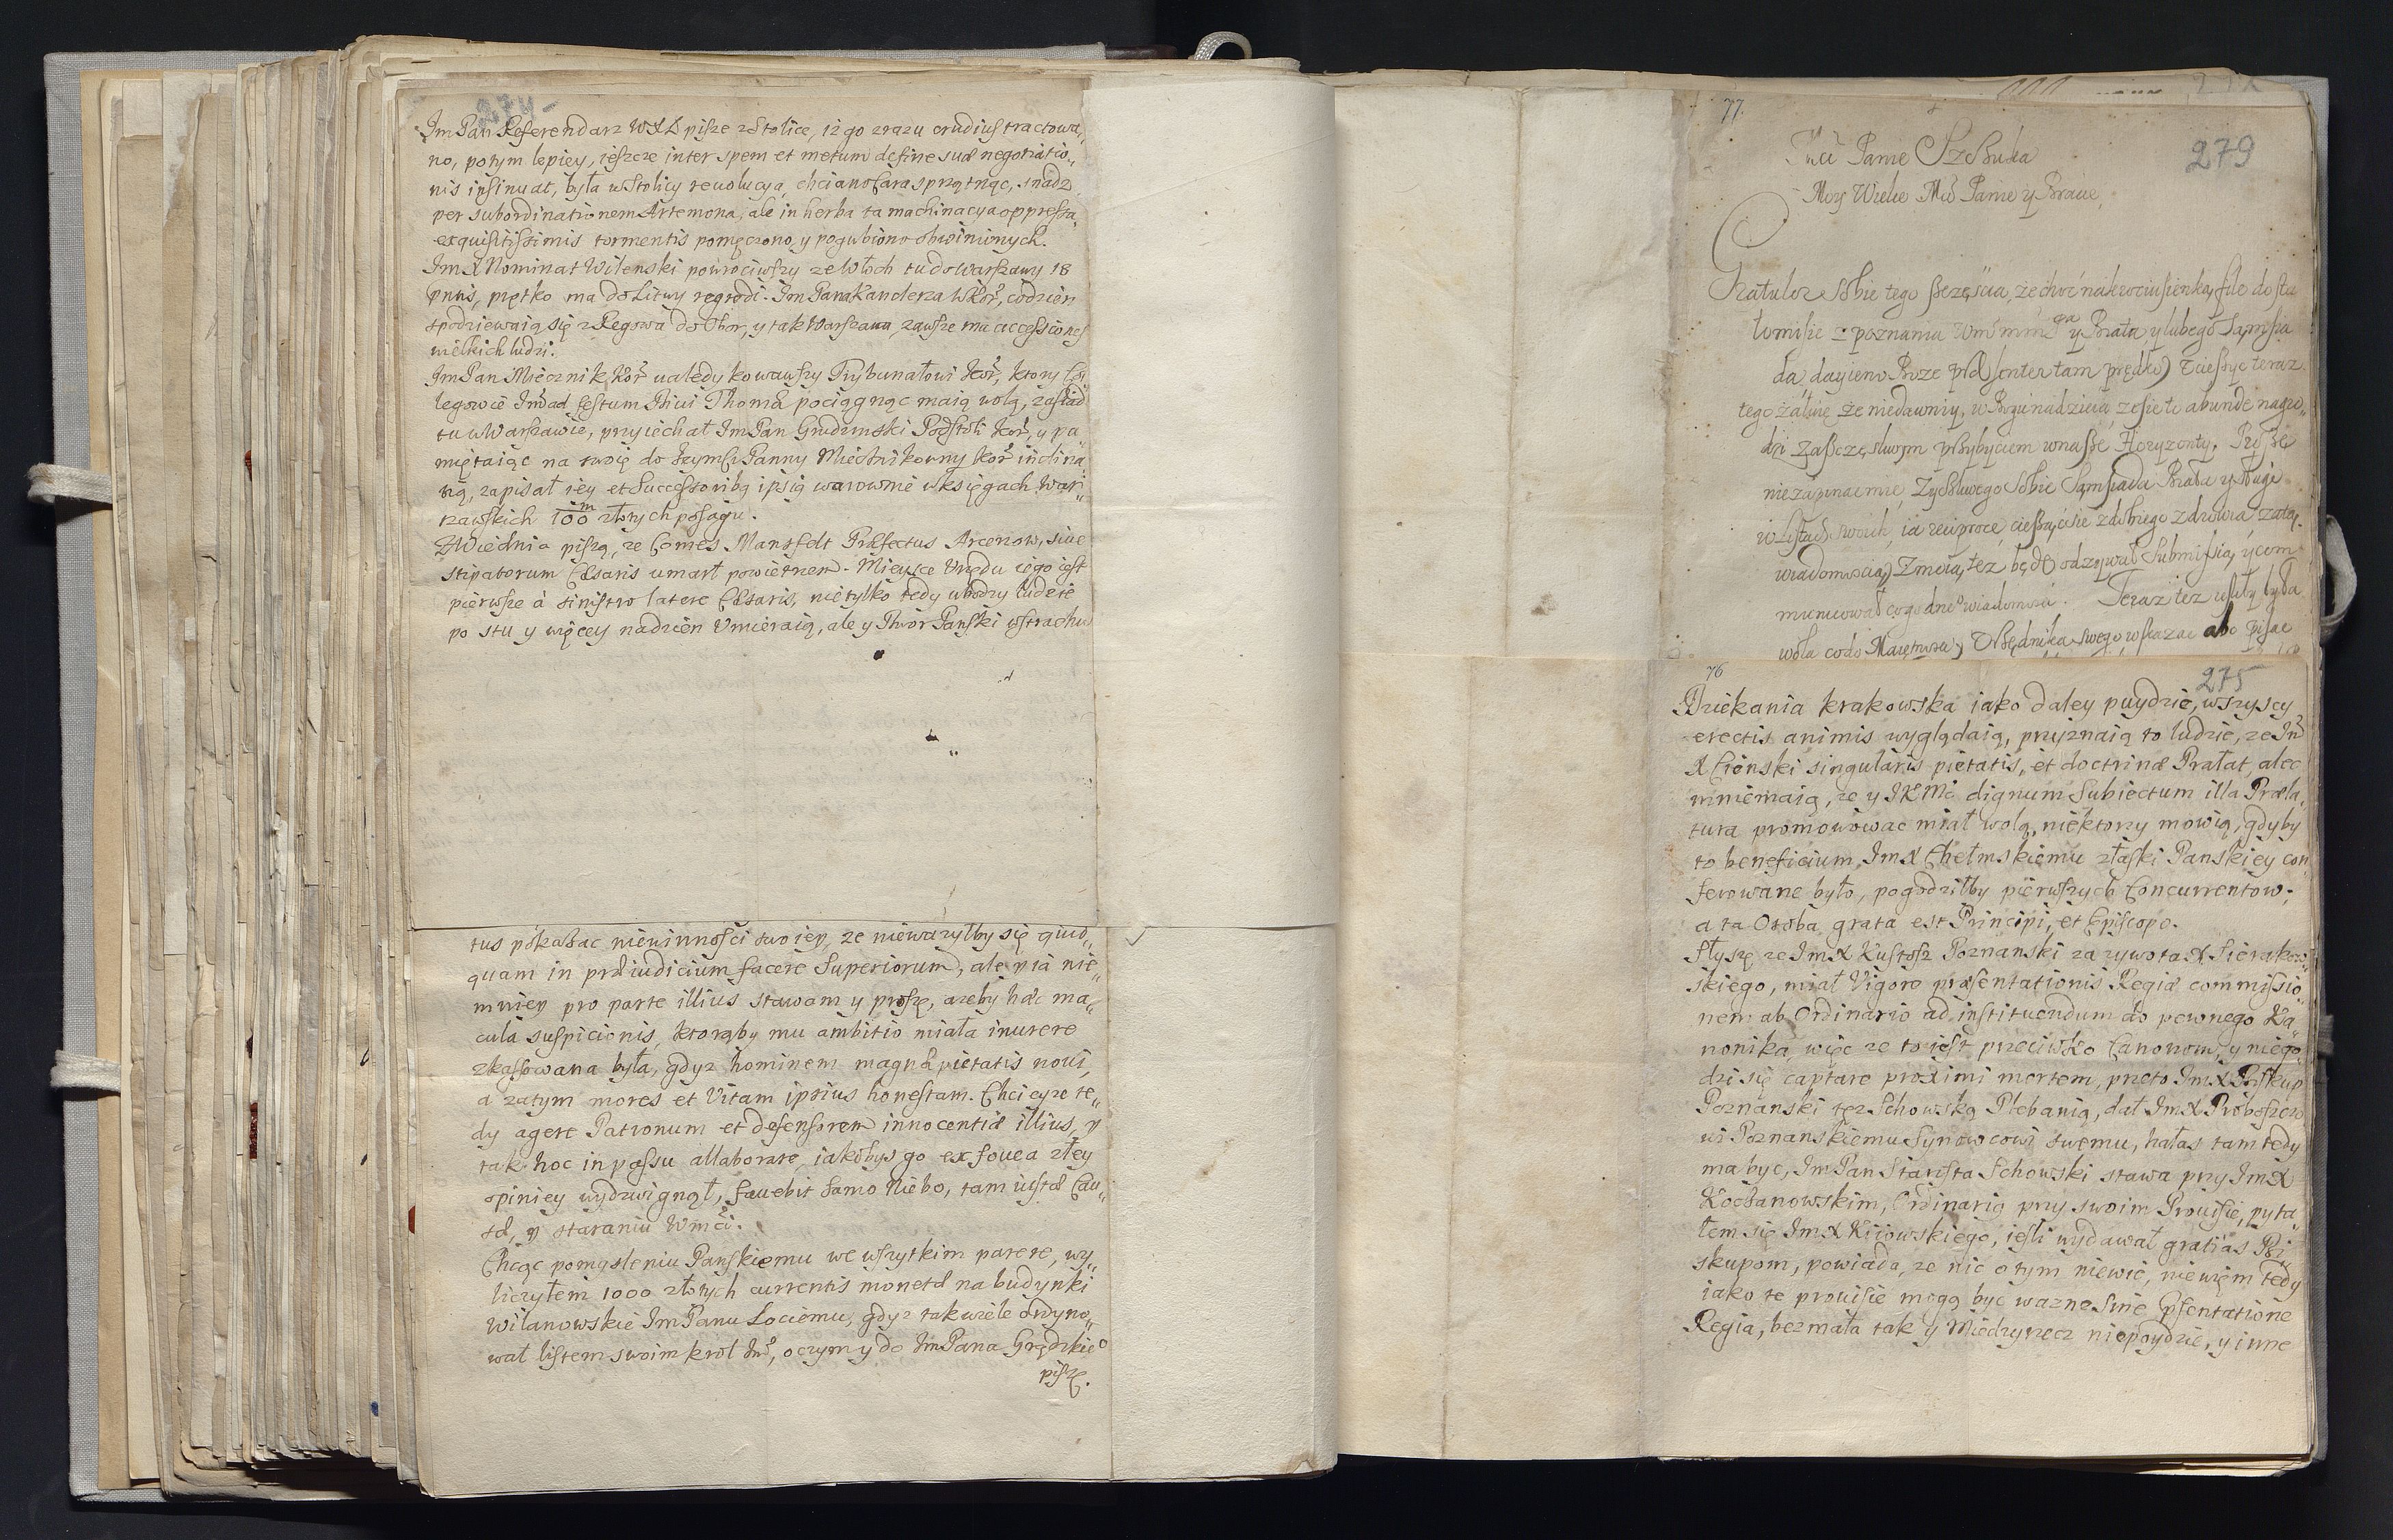 274
ImPan Referendarz WXL pisze z Stolice, iz go zrazu crudius tractowa„
no, potym lepiey, ieszcze inter spem et metum de fine suæ negotiatio„
nis insinuat, była w Stolicy rewolucya, chciano Cara sprzątnąc, snadz
per subordinationem Artemona, ale in herba ta machinacya oppressa„
exquisitissimis tormentis pomęczono, y pogubiono obwinionych.
ImX Nominat Wilenski powrociwszy ze Włoch tu do Warszawy 18
pntis, prętko ma do Litwy regredi. Im Pana Kanclerza WKor, codzien
spodziewaią się z Regowa do Obor, y tak Warszawa zawsze ma accessiones
wielkich ludzi.
ImPan Miecznik Kor ualedykowawszy Trybunałowi Kor, ktory
legowie Im ad festum Diui Thomæ pociągnąc maią wolą, ziachał
tu w Warszawie, przyiechał ImPan Grudzinski Podstoli Kor, y pa„
miętaiąc na swoię do Ieymsci Panny Miecznikowny Kor inclina„
tią, zapisał iey et Successoribq ipsiq warownie w księgach War„
szawskich 100 m złotych posagu.
Z Wiednia piszą, ze Comes Mansfelt Præfectus Arcerow, siue
stipatorum Cæsaris umarł powietrzem. Mieysce Vrzędu iego iest
pierwsze à sinistro latere Cæsaris, nie tylko tedy ubodzy ludzie
po stu y więcey na dzien Vmieraią, ale y Dwor Panski w strachu
tus pokazac niewinnosci swoiey, ze niewazyłby się quid„
quam in præiudicium facere Superiorum, ale y ia nie„
mniey pro parte illius stawam y proszę, azeby hæc ma„
cula suspicionis, ktorąby mu ambitio miała inurere
zkassowana była, gdyz hominem magnæ pietatis noui,
a zatym mores et Vitam ipsius honestam. Chciey ze te„
dy agere Patronum et defensorem innocentiæ illius, y
tak hoc in passu allaborare, iakobys go ex fouea złey
opiniey wydzwignął, fauebit samo Niebo, tam iustæ Cau„
sæ, y staraniu Wmci.
Chcąc pomysleniu Panskiemu we wszytkim parere, wy„
liczyłem 1000 złotych currentis monetæ na budynki
Wilanowskie ImPanu Lociemu, gdyz tak wiele ordyno„
wał listem swoim krol Im, o czym y do ImPana Grądzkie°
piszę.
77.
279
Mci Panie Szczuka
Moy Wielce Mci Panie y Bracie,
Gratulor Sobie tego szczęscia, ze choc na krociusienką
z poznania y Brata y lubego Sąmsia
da, Boze teraz
tego załuię ze niedawniy, w Bogu nadzieia, ze się to abunde nagro„
dzi za szczęsliwym przybyciem w nasze Horyzonty. Prosze
niezapinac mnie, Zyczliwego Sobie Sąmsiada Brata y Sługi
w listach swoich, ia reciproce ciesząc sie z dobrego zdrowia
wiadomoscią, też będę odzywał Submissią, y com
municował co godne° wiadomosci. Teraz tez
wola co do Maiętnosci, Vrzędnika swego wskazac abo pisac
76
275
Dziekania krakowska iako daley puydzie, wszyscy
erectis animis wyglądaią, przyznaią to ludzie, ze Im
X Cienski singularis pietatis, et doctrinæ Prałat, alec
mniemaią, ze y IKMc dignum Subiectum illa Præla„
tura promowowac miał wolą, niektorzy mowią, gdyby
to beneficium ImX Chełmskiemu z łaski Panskiey con
ferowane było, pogodziłby pierwszych Concurrentow,
a ta Osoba grata est Principi, et Episcopo.
Słyszę ze ImX Kustosz Poznanski za zywota X Sierakow„
skiego, miał Vigore præsentationis Regiæ commissio„
nem ab Ordinario ad instituendum do pewnego Ka„
nonika, więc ze to iest przeciwko Canonom, y niego„
dzi się captare proximi mortem, przeto ImX Biskup
Poznanski tęz Schowską Plebanią, dał ImX Proboszczo
wi Poznanskiemu Synowcowi swemu, hałas tam tedy
ma byc, ImPan Starosta Schowski stawa przy ImX
Kochanowskim, Ordinariq przy swoim Prouisie, pyta„
łem się ImX Kiiowskiego, iesli wydawał gratias Bi„
skupom, powiada, ze nic o tym niewie, niewiem tedy
iako te prouisie mogą byc wazne sine Pſentatione
Regia, bez mała tak y Miedzyrzecz niepoydzie, y inne